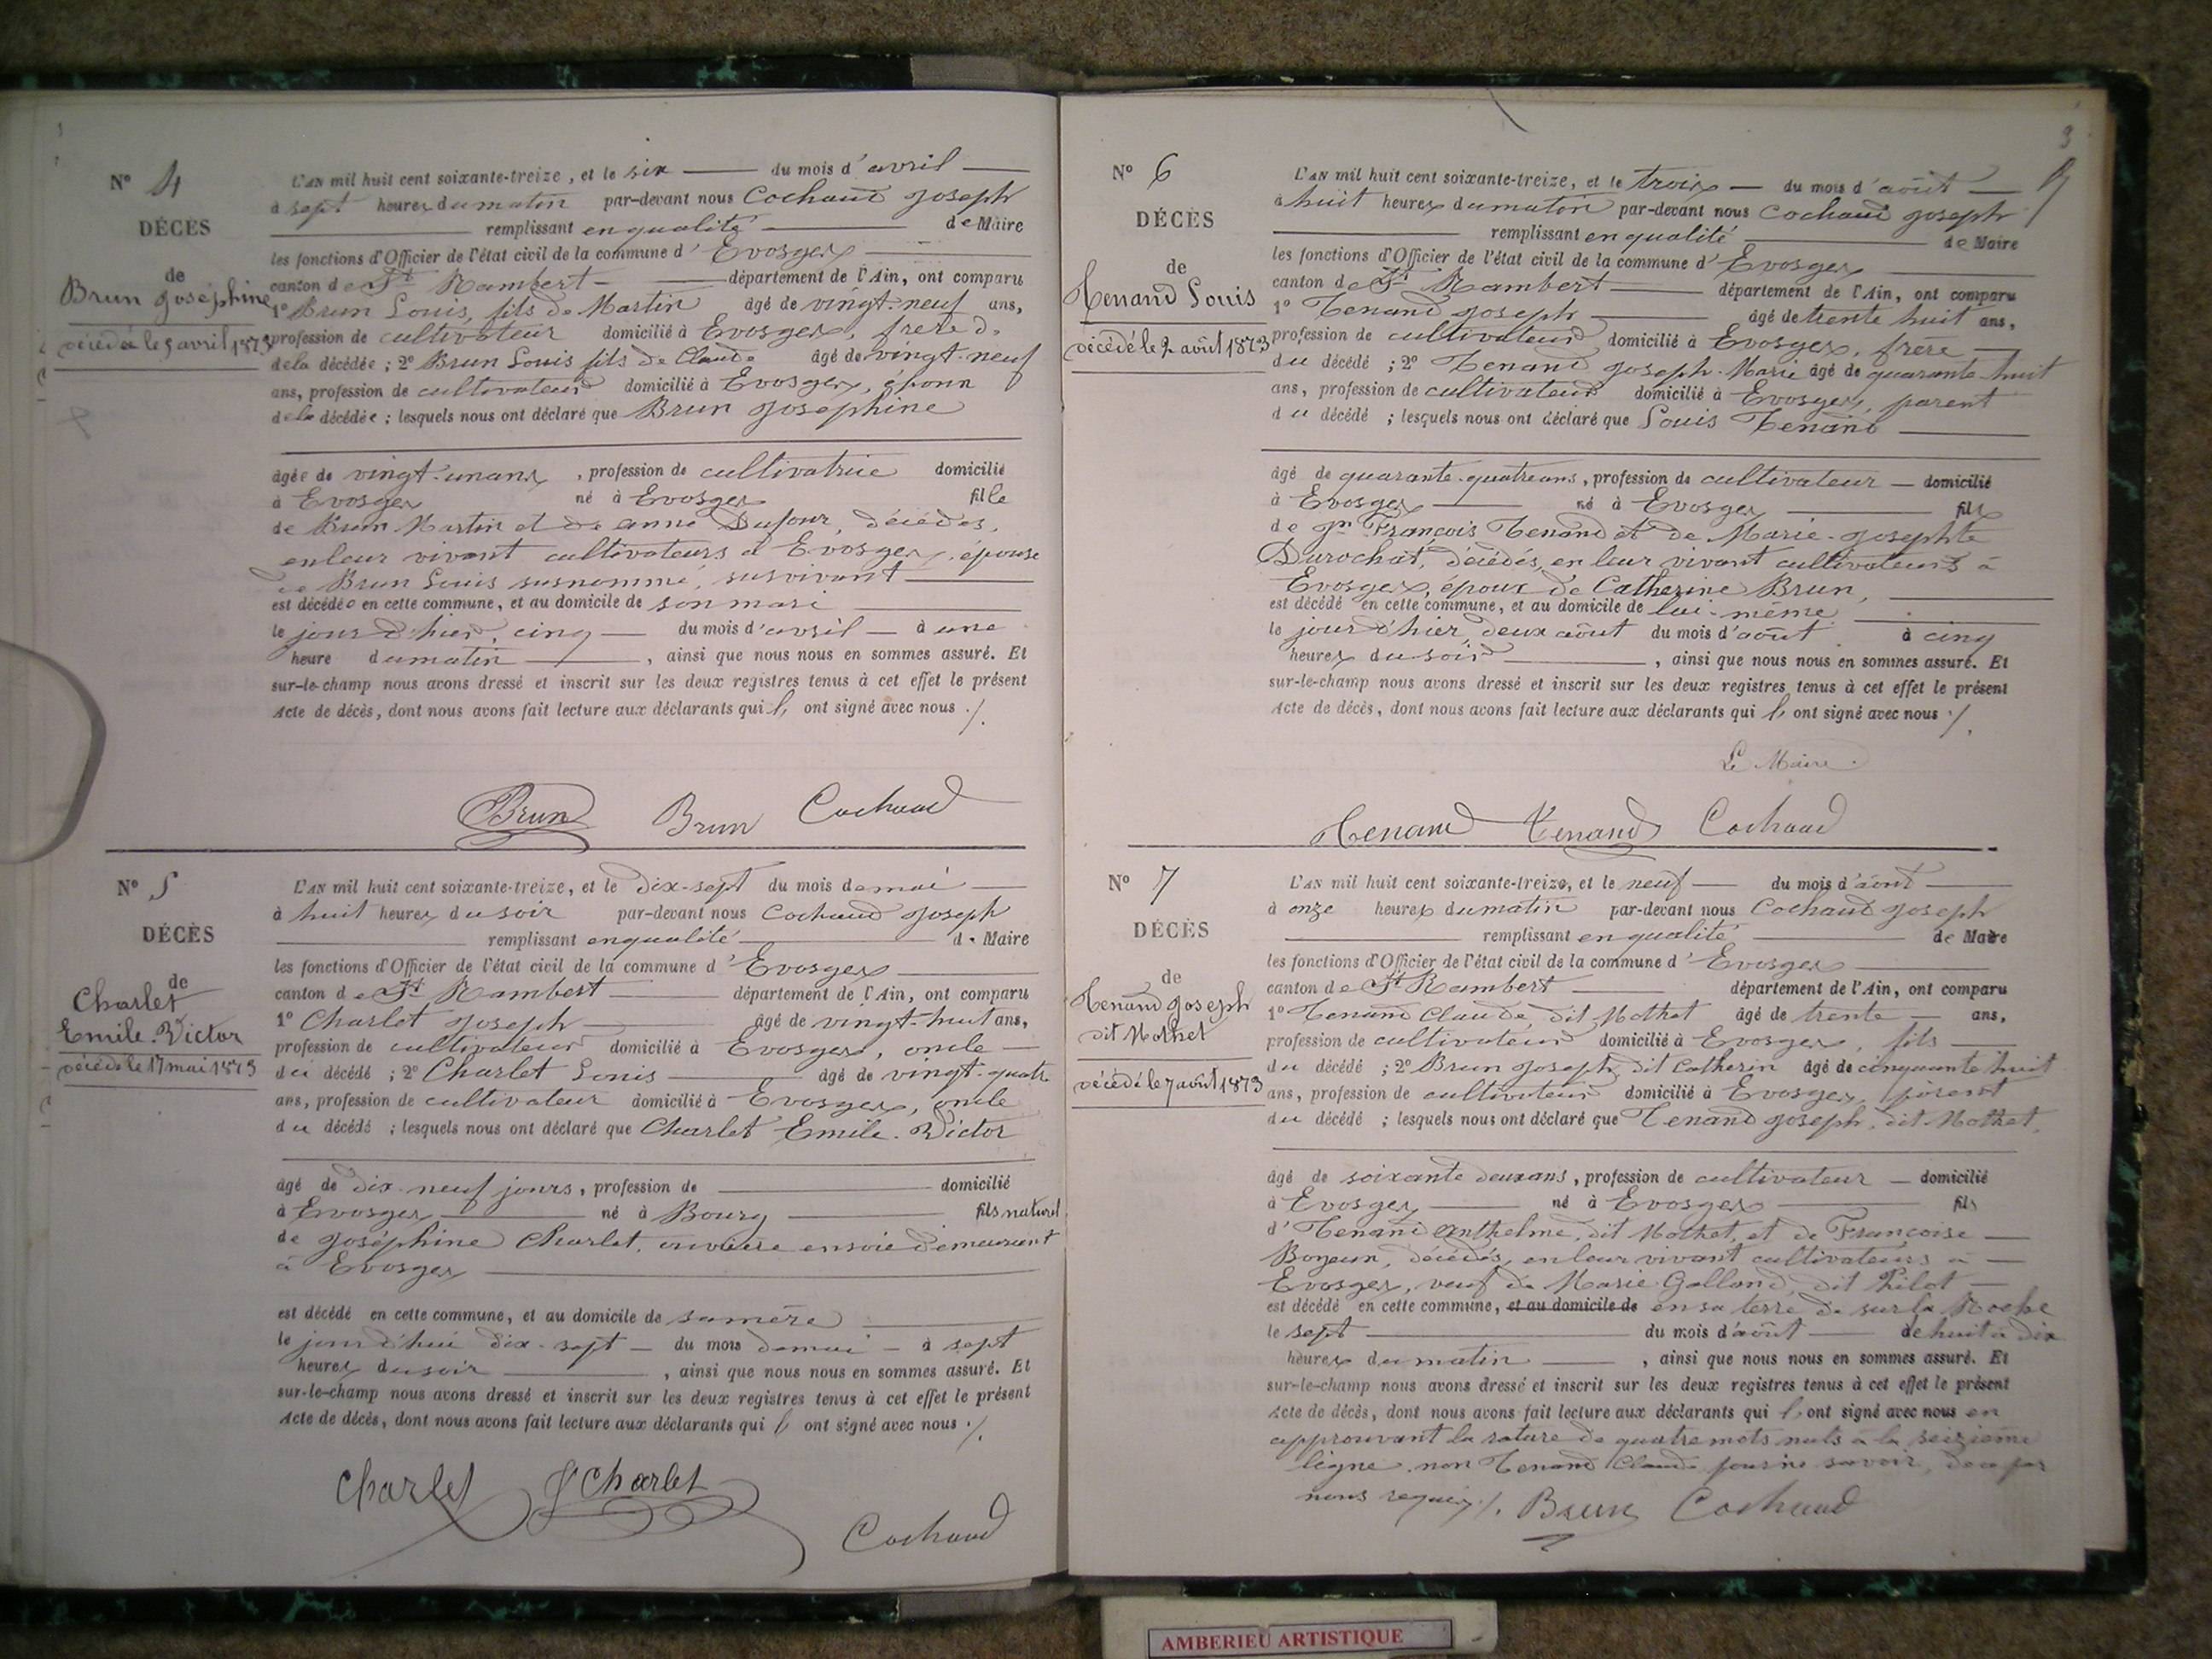 Nº 4
DÉCÈS
de
Brun Joséphine
décédée le 5 avril 1873
L'AN mil huit cent soixante-treize, et le six du mois d'avril
à sept heures du matin par-devant nous Cochaud Joseph
remplissant en qualité de Maire
les fonctions d'Officier de l'état civil de la commune d'Evosges
canton de St Rambert département de l'Ain, ont comparu
1º Brun Louis, fils de Martin âgé de vingt-neuf ans,
profession de cultivateur domicilié à Evosges, frère de
de la décédée ; 2º Brun Louis fils de Claude âgé de vingt-neuf
ans, profession de cultivateur domicilié à Evosges, époux
de la décédée ; lesquels nous ont déclaré que Brun Joséphine
âgée de vingt-un ans, profession de cultivatrice domicilié
à Evosges né à Evosges fille
de Brun Martin et de Anne Dufour, décédés,
en leur vivant cultivateurs à Evosges, épouse
de Brun Louis susnommé, survivant
est décédée en cette commune, et au domicile de son mari
le jour d'hier, cinq du mois d'avril à une
heure du matin, ainsi que nous nous en sommes assuré. Et
sur-le-champ nous avons dressé et inscrit sur les deux registres tenus à cet effet le présent
Acte de décès, dont nous avons fait lecture aux déclarants qui l' ont signé avec nous ./.
Brun Brun Cochaud
Nº 5
DÉCÈS
de
Charlet
Emile-Victor
décédé le 17 mai 1873
L'AN mil huit cent soixante-treize, et le dix-sept du mois de mai
à huit heures du soir par-devant nous Cochaud Joseph
remplissant en qualité de Maire
les fonctions d'Officier de l'état civil de la commune d'Evosges
canton de St Rambert département de l'Ain, ont comparu
1º Charlet Joseph âgé de vingt-huit ans,
profession de cultivateur domicilié à Evosges, oncle
du décédé ; 2º Charlet Louis âgé de vingt-quatre
ans, profession de cultivateur domicilié à Evosges, oncle
du décédé ; lesquels nous ont déclaré que Charlet Emile-Victor
âgé de dix-neuf jours, profession de domicilié
à Evosges né à Bourg fils naturel
de Joséphine Charlet, ouvrière en soie demeurant
à Evosges
est décédé en cette commune, et au domicile de sa mère
le jourd'hui dix-sept du mois de mai à sept
heures du soir, ainsi que nous nous en sommes assuré. Et
sur-le-champ nous avons dressé et inscrit sur les deux registres tenus à cet effet le présent
Acte de décès, dont nous avons fait lecture aux déclarants qui l' ont signé avec nous ./.
Charlet Charlet
Cochaud
3
Nº 6
DÉCÈS
de
Tenand Louis
décédé le 2 août 1873
L'AN mil huit cent soixante-treize, et le trois du mois d'août
à huit heures du matin par-devant nous Cochaud Joseph
remplissant en qualité de Maire
les fonctions d'Officier de l'état civil de la commune d'Evosges
canton de St Rambert département de l'Ain, ont comparu
1º Tenand Joseph âgé de trente huit ans,
profession de cultivateur domicilié à Evosges, frère
du décédé ; 2º Tenand Joseph-Marie âgé de quarante huit
ans, profession de cultivateur domicilié à Evosges, parent
du décédé ; lesquels nous ont déclaré que Louis Tenand
âgé de quarante-quatre ans, profession de cultivateur domicilié
à Evosges né à Evosges fils
de Jn François Tenand et de Marie-Josephte
Durochat, décédés, en leur vivant cultivateurs à
Evosges, époux de Catherine Brun,
est décédé en cette commune, et au domicile de lui-même
le jour d'hier, deux août du mois d'août à cinq
heures du soir, ainsi que nous nous en sommes assuré. Et
sur-le-champ nous avons dressé et inscrit sur les deux registres tenus à cet effet le présent
Acte de décès, dont nous avons fait lecture aux déclarants qui l' ont signé avec nous ./.
Le Maire.
Tenand Tenand Cochaud
Nº 7
DÉCÈS
de
Tenand Joseph
dit Mothet
décédé le 7 août 1873
L'AN mil huit cent soixante-treize, et le neuf du mois d'août
à onze heures du matin par-devant nous Cochaud Joseph
remplissant en qualité de Maire
les fonctions d'Officier de l'état civil de la commune d'Evosges
canton de St Rambert département de l'Ain, ont comparu
1º Tenand Claude, dit Mothet âgé de trente ans,
profession de cultivateur domicilié à Evosges, fils
du décédé ; 2º Brun Joseph, dit Catherin âgé de cinquante huit
ans, profession de cultivateur domicilié à Evosges, parent
du décédé ; lesquels nous ont déclaré que Tenand Joseph, dit Mothet,
âgé de soixante deux ans, profession de cultivateur domicilié
à Evosges né à Evosges fils
d'Tenand Anthelme, dit Mothet, et de Françoise
décédés, en leur vivant cultivateurs à
Evosges, veuf de Marie Golland, dit Pilot
est décédé en cette commune, et au domicile de en sa terre de sur la Roche
le sept du mois d'août de huit à dix
heures du matin, ainsi que nous nous en sommes assuré. Et
sur-le-champ nous avons dressé et inscrit sur les deux registres tenus à cet effet le présent
Acte de décès, dont nous avons fait lecture aux déclarants qui l' ont signé avec nous en
approuvant la rature de quatre mots nuls à la seizième
ligne, non Tenand Claude pour ne savoir, de ce par
nous requis ./. Brun Cochaud
AMBERIEU ARTISTIQUE